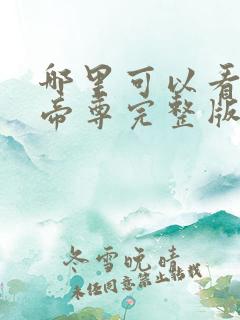 哪里可以看
帝尊完整版
冬雪晚晴
未经同意禁止转载